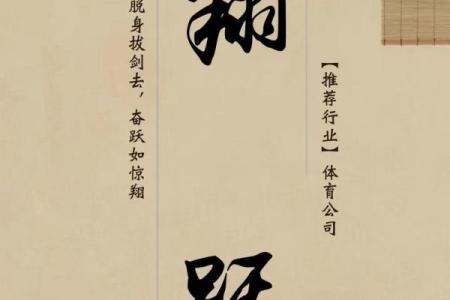 【推荐行业】体育公司
翔跃
脱身拔剑去，奋跃如惊翔